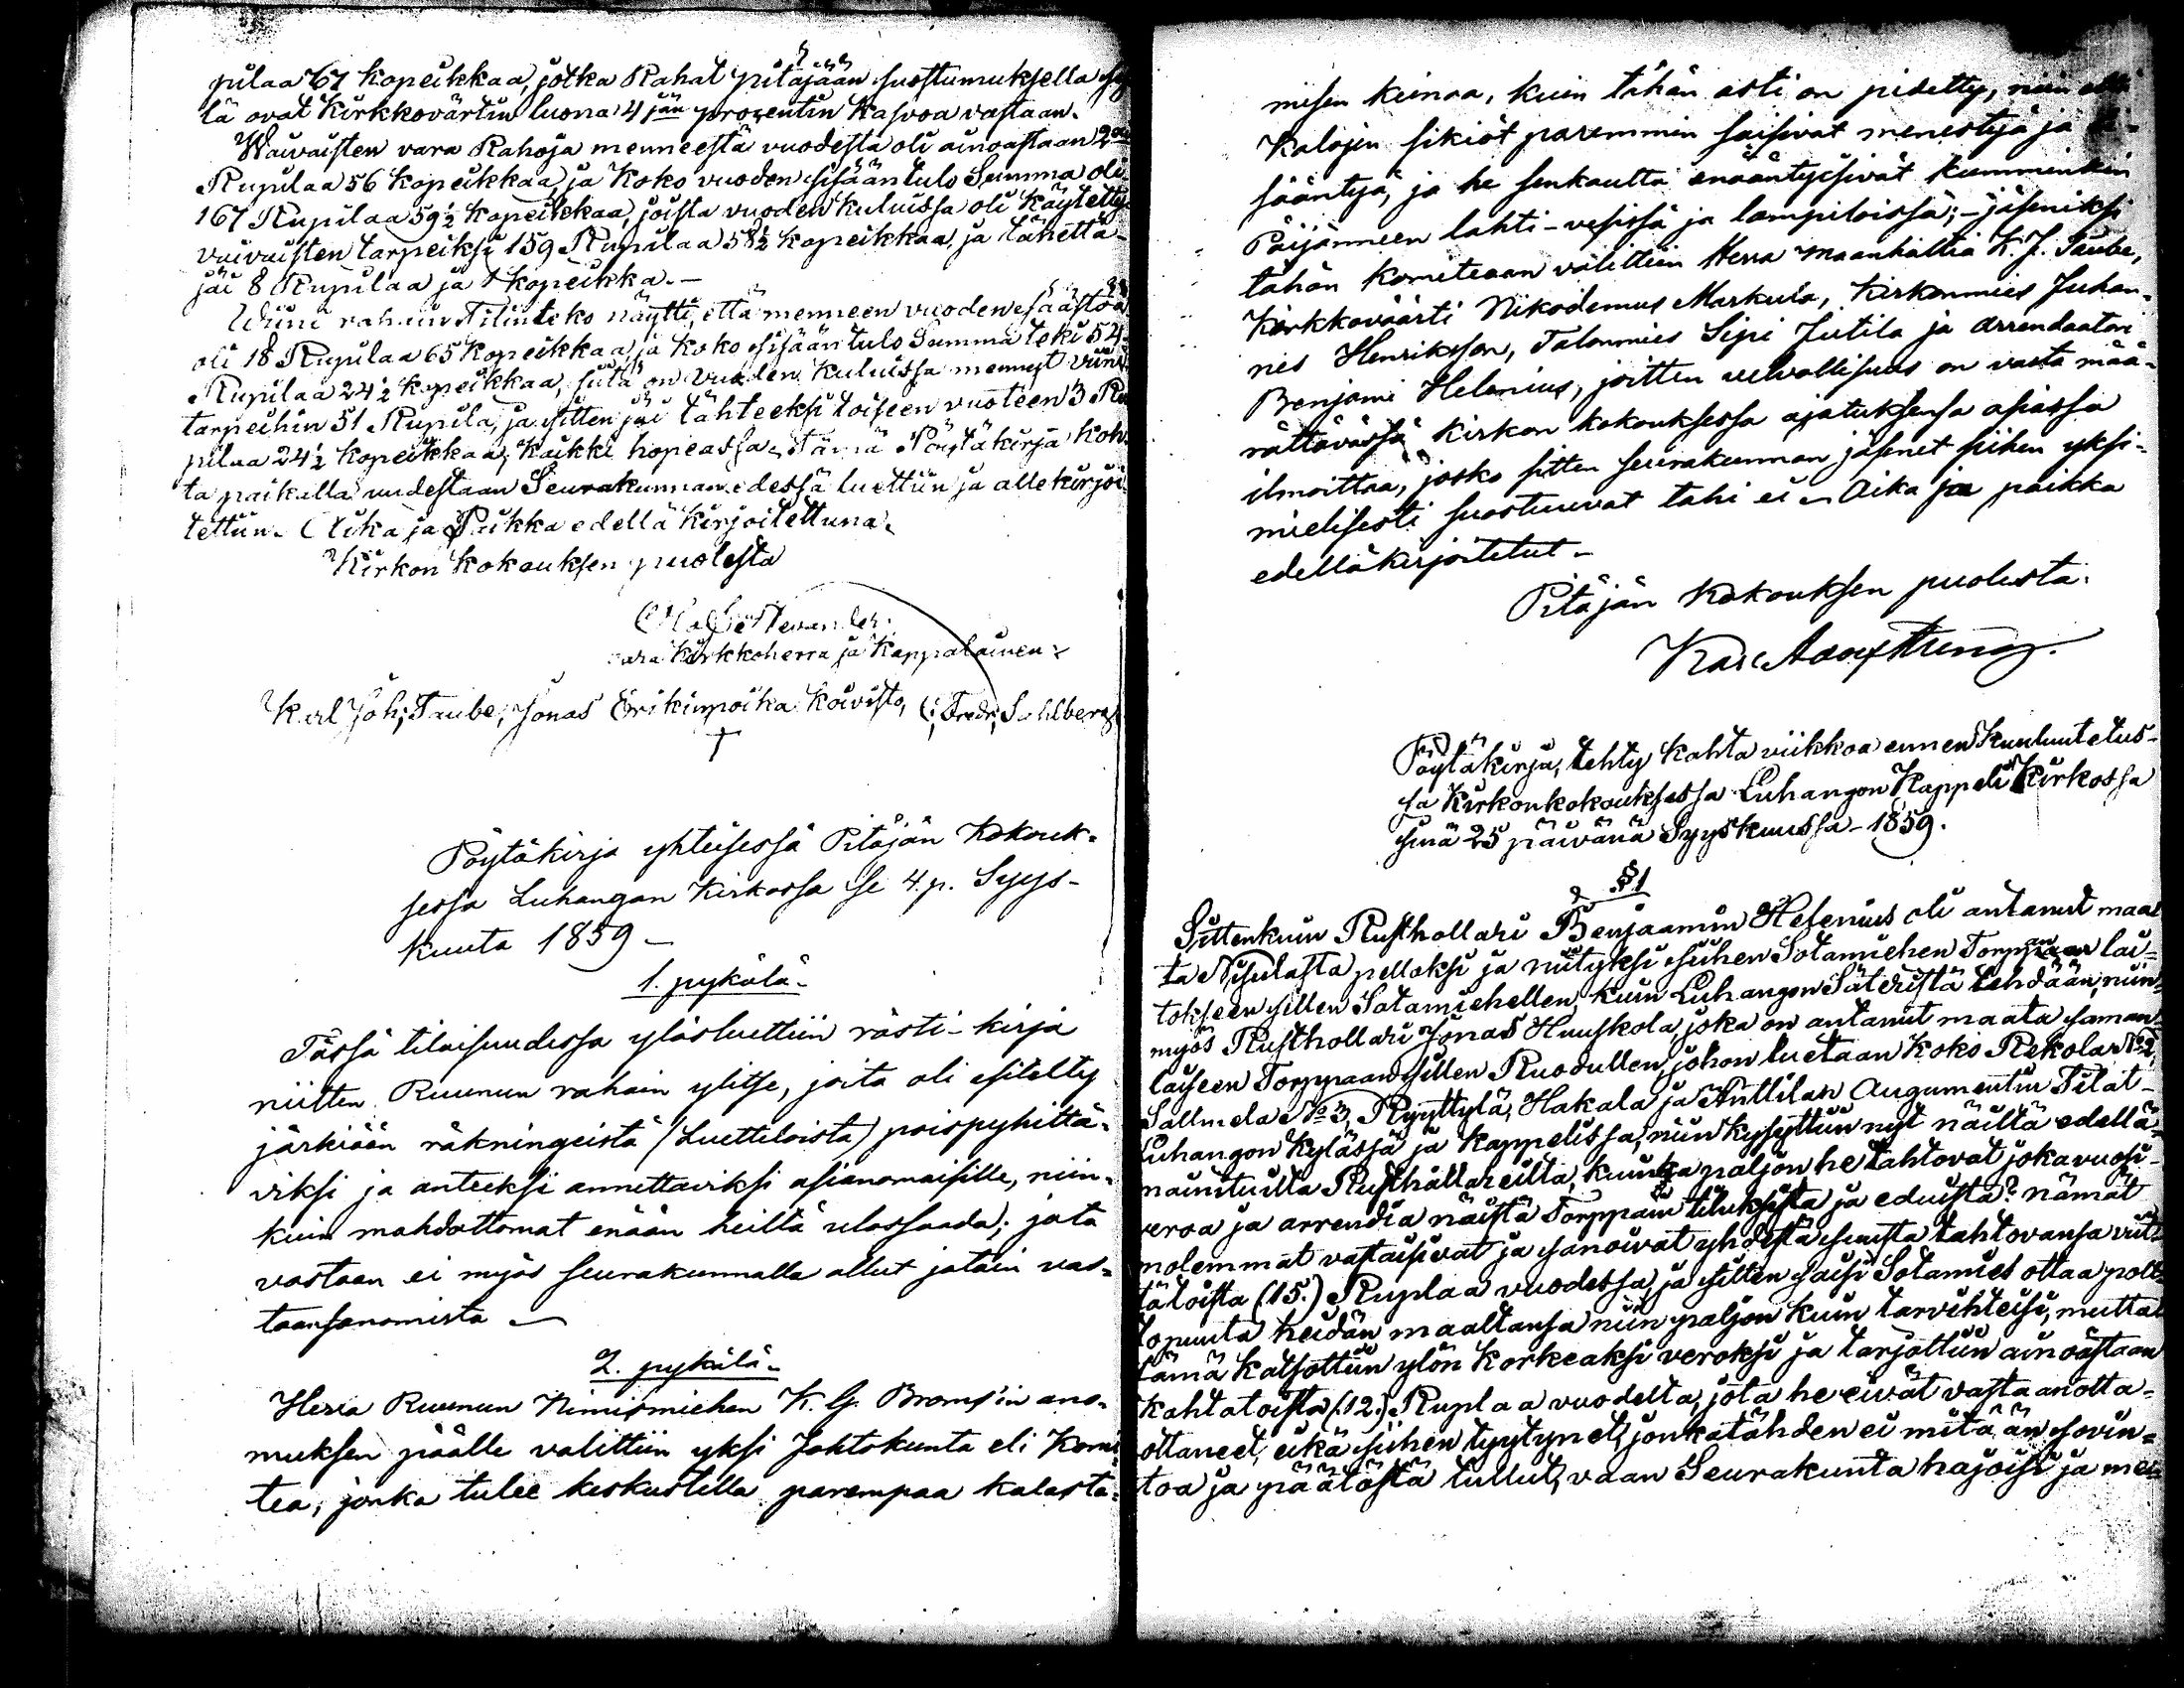 pilaa 67 kopeikkaa, jotka Rahat pitäjään suostumuksella
lä ovat Kirkkovärtin luona 4 jän prozentin Kasvoa vastaan.
Waivaisten vara Rahoja menneestä vuodesta oli ainoastaan 2
Rupilaa 56 kopeikkaa, ja Koko vuoden sisääntulo Summa oli
167 Rupilaa 59½ kopeikkaa, joista vuoden kuluissa oli käytetty
vaivaisten tarpeiksi 159 Rupilaa 58½ kopeikkaa, ja tähettä-
jäi 8 Rupilaa ja 1 kopeikka.-
Wiini rahain Tilinteko näytti, että menneen vuoden säästöä
oli 18 Rupilaa 65 kopeikkaa, ja koko sisääntulo Summa teki 54
Rupilaa 24½ kopeikkaa, siitä on vuoden kuluissa mennyt viini
tarpeihin 51 Rupila, ja sitten jäi tähteeksi toiseen vuoteen 3 Ru
pilaa 24½ kopeikkaa, kaikki hopeassa. Tämä Pöytäkirja koh-
ta paikalla uudestaan Seurakunnan edessä luettiin ja allekirjoi-
tettiin. Aika ja Paikka edellä kirjoitettuna.
Kirkon kokouksen puolesta
vara Kirkkoherra ja Kappalainen
Karl Joh; Taube, Jonas Erikinpoika Koivisto, Fredr; Sahlberg
Pöytäkirja yhteisessä Pitäjän Kokouk-
sessa Luhangan Kirkossa se 4. p. Syys-
kuuta 1859-
1. pykälä-
Tässä tilaisuudessa ylösluettiin rästi-kirja
niitten Ruunun rahain ylitse, joita oli esitelty
järkiään räkningeistä (Luetteloista) poispyhittä-
viksi ja anteeksi annettaviksi asianomaisille, niin-
kuin mahdottomat enään heiltä ulossaada; jota
vastaan ei myös seurakunnalla ollut jotain vas-
taansanomista
2. pykälä-
Herra Ruunun Nimismiehen K. G. Broms'in ano-
muksen päälle valittiin yksi Johtokunta eli Komi-
tea, jonka tulee keskustella parempaa kalasta-
misen keinoa, kuin tähän asti on pidetty, niin että
Kalojen sikiöt paremmin saisivat menestyä ja
sääntyä, ja he senkautta enääntyisivät kumminkin
Päijänneen lahti-vesissä ja lampiloissa; - jäseniksi
tähän Komiteaan välittiin Herra maanhaltia K. J. Taube,
Kirkkoväärti Nikodemus Markula, Kirkonmies Juhan-
nes Henriksson, Talonmies Sipi Jutila ja arrendaatori
Benjami Helenius, joitten velvollisuus on vasta mää-
rättävässä Kirkon kokouksessa ajatuksensa asiassa
ilmoittaa, josko sitten seurakunnan jäsenet siihen yksi-
mielisesti suostuuvat tahi ei - Aika ja paikka
edelläkirjoitetut-
Pitäjän Kokouksen puolesta:
Pöytäkirja, tehty kahta viikkoa ennen kuulutetus-
sa Kirkonkokouksessa Luhangon Kappeli Kirkossa
sinä 25 päivänä Syyskuussa-1859.
§ 1
Sittenkuin Rusthollari Benjaamin Helenius oli antanut maa-
ta Nisulasta pelloksi ja niityksi siihen Sotamiehen Torppaan lai-
tokseen sillen Sotamiehellen kuin Luhangon Säteristä tehdään, niin
myös Rusthollari Jonas Huuskola, joka on antanut maata saman-
laiseen Torppaan sillen Ruodullen, johon luetaan koko Rekola No 2,
Sallmela No 3, Ryyttylä, Hakala ja Anttilan Augumentin Tilat-
Luhangon kylässä ja kappelissa, niin kysyttiin nyt näiltä edellä-
mainituilta Rusthallareilta, kuinka paljon he tahtovat joka vuosi-
veroa ja arrendia näistä Torppain tiluksista ja eduista? nämät
molemmat vastaisivat ja sanoivat yhdestä suusta tahtovansa viit-
tätoista (15.) Ruplaa vuodessa, ja sitten saisi Sotamies ottaa polt-
topuuta heidän maaltansa niin paljon kuin tarvihteisi, mutta
tämä katsottiin ylön korkeaksi veroksi ja tarjottiin ainoastaan
kahtatoista (12.) Ruplaa vuodelta, jota he eivät vastaanotta-
ottaneet, eikä siihen tyytynet, jonkatähden ei mitään sovin-
toa ja päätöstä tullut, vaan Seurakunta hajoisi ja